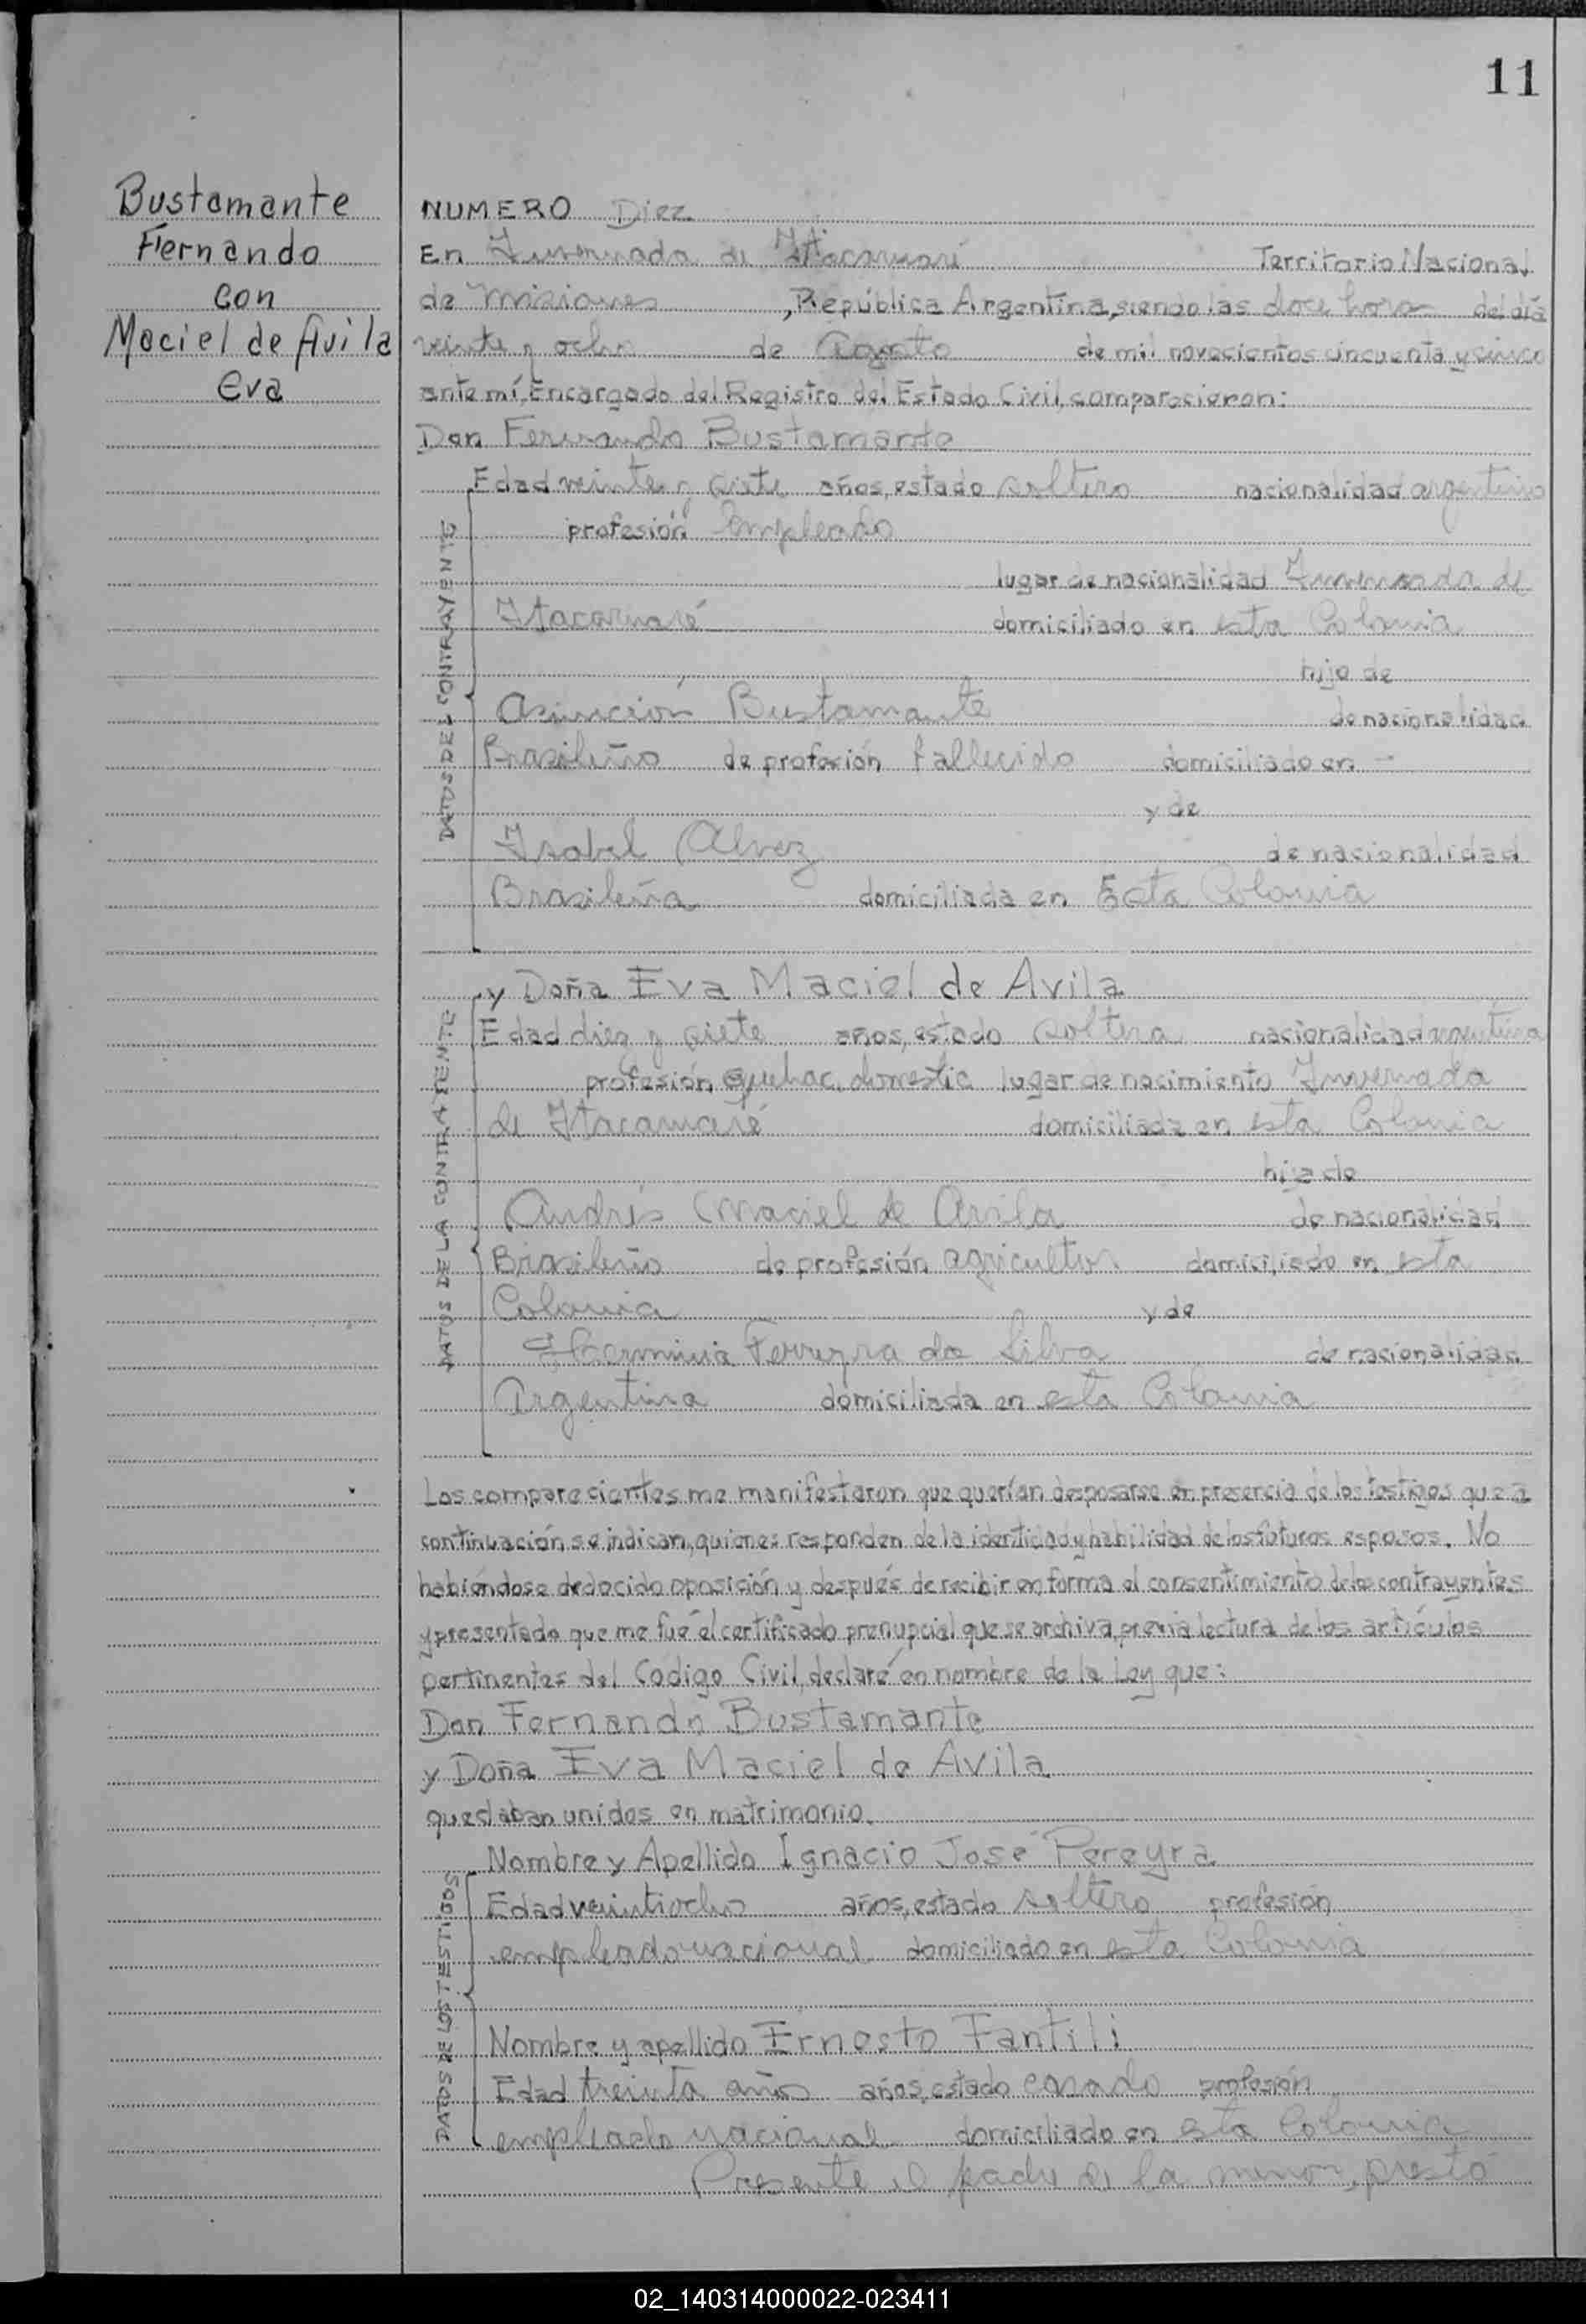 11
Bustamante
Fernando
con
Maciel de Avila
Eva
NUMERO Diez
En Invernada de Itacaruaré Territorio Nacional
de Misiones, República Argentina, siendo las doce horas del día
veinte y ocho de Agosto de mil novecientos cincuenta y cinco
ante mí, Encargado del Registro del Estado Civil, comparecieron:
Don Fernando Bustamante
DATOS DEL CONTRAYENTE
Edad veinte y siete años, estado soltero nacionalidad argentino
profesión Empleado
lugar de nacionalidad Invernada de
Itacaruaré domiciliado en esta Colonia
hijo de
Asunción Bustamante de nacionalidad
Brasileño de profesión fallecido domiciliado en -
y de
Isabel Alvez de nacionalidad
Brasileña domiciliada en Esta Colonia
y Doña Eva Maciel de Avila
DATOS DE LA CONTRAIENTE
Edad diez y siete años, estado soltera nacionalidad argentina
profesión quehac. domestic lugar de nacimiento Invernada
de Itacaruaré domiciliada en esta Colonia
hija de
Andrés Maciel de Avila de nacionalidad
Brasileño de profesión agricultor domiciliado en esta
Colonia y de
Herminia Ferreyra da Silva de nacionalidad
Argentina domiciliada en esta Colonia
Los comparecientes me manifestaron que querían desposarse en presencia de los testigos que a
continuación se indican, quienes responden de la identidad y habilidad de los futuros esposos. No
habiéndose deducido oposición y después de recibir en forma el consentimiento de los contrayentes
y presentado que me fué el certificado prenupcial que se archiva, previa lectura de los artículos
pertinentes del Código Civil, declaré en nombre de la Ley que:
Don Fernando Bustamante
y Doña Eva Maciel de Avila
quedaban unidos en matrimonio.
DATOS DE LOS TESTIGOS
Nombre y Apellido Ignacio José Pereyra
Edad veintiocho años, estado soltero profesión
empleado nacional domiciliado en esta Colonia
Nombre y apellido Ernesto Fantili
Edad treinta años años, estado casado profesión
empleado nacional domiciliado en esta Colonia
Presente el padre de la menor, prestó
02_140314000022-023411